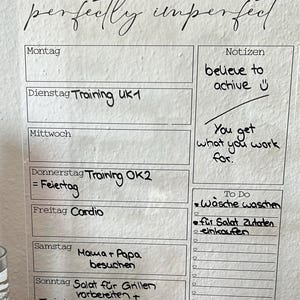 perfectly imperfect
Montag
Dienstag Training UK1
Mittwoch
Donnerstag Training OK2
= Feiertag
Freitag Cardio
Samstag
Mama + Papa
besuchen
Sonntag Salat für Grillen
vorbereiten +
Notizen
believe to
achive
You get
what you work
for.
To Do
Wäsche waschen
für Salat Zutaten
einkaufen